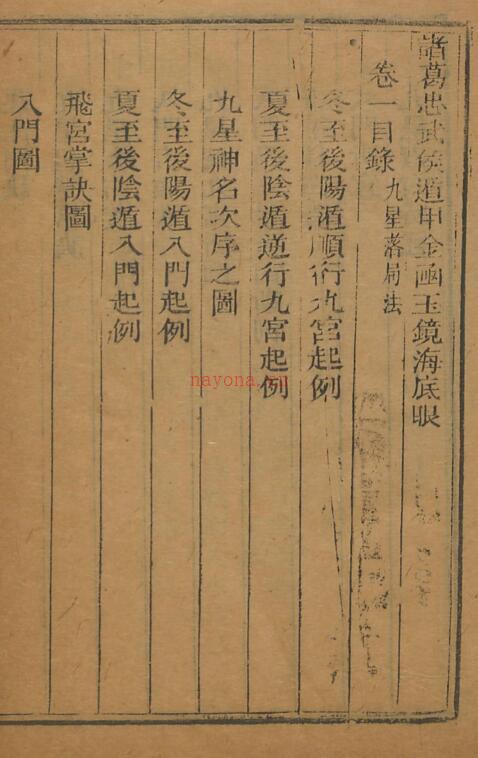 諸葛忠武侯遁甲金凾玉鏡海底眼
卷一目錄 九星落局法
冬至後陽遁順行九宮起例
夏至後陰遁逆行九宮起例
九星神名次序之圖
冬至後陽遁入門起例
夏至後陰遁入門起例
飛宮掌訣圖
入門圖
nayona.cn